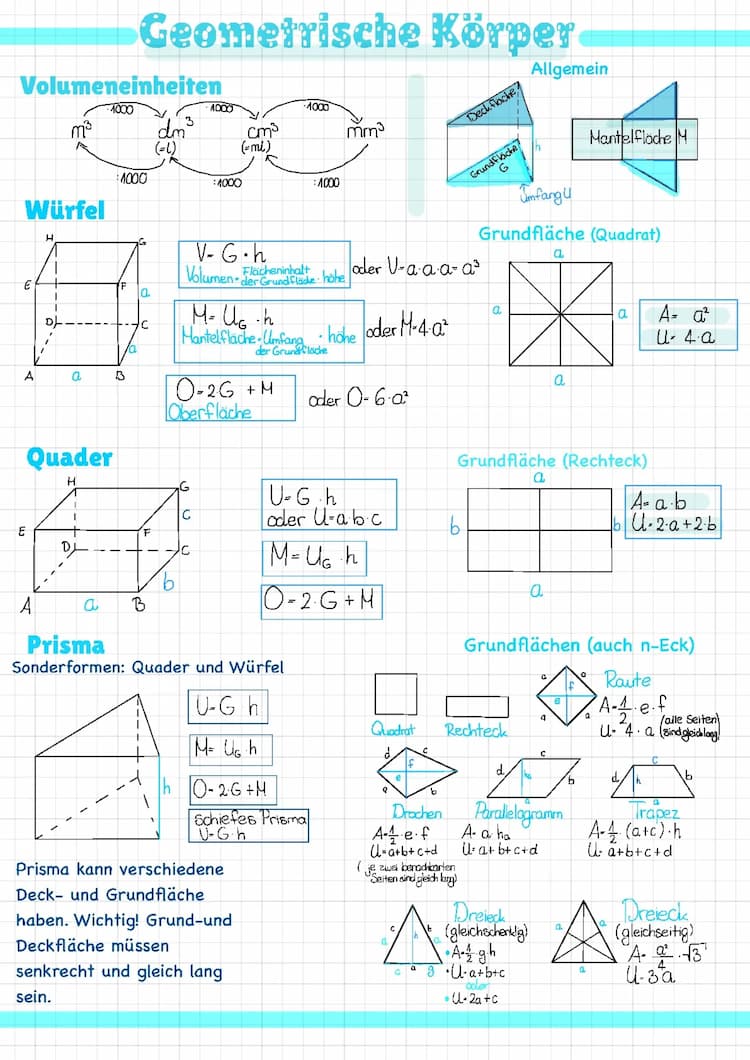 Geometrische Körper
Volumeneinheiten
·1000 ·1000 ·1000
m³ dm³ cm³ mm³
(=l) (=ml)
:1000 :1000 :1000
Allgemein
Deckfläche
Grundfläche
G
h
Umfang U
Mantelfläche M
Würfel
H G
E F
a
D C
a
A a B
V= G · h
Volumen = Flächeninhalt der Grundfläche · höhe
oder V=a·a·a= a³
M= U_G · h
Mantelfläche = Umfang der Grundfläche · höhe
oder M=4·a²
O=2G + M
Oberfläche
oder O= 6·a²
Grundfläche (Quadrat)
a
a a
a
A= a²
U= 4·a
Quader
H G
c
E F
D C
b
A a B
V=G·h
oder V=a·b·c
M= U_G · h
O=2·G+M
Grundfläche (Rechteck)
a
b b
a
A= a·b
U=2·a+2·b
Prisma
Sonderformen: Quader und Würfel
h
V=G·h
M= U_G·h
O=2·G+M
schiefes Prisma
V=G·h
Prisma kann verschiedene
Deck- und Grundfläche
haben. Wichtig! Grund-und
Deckfläche müssen
senkrecht und gleich lang
sein.
Grundflächen (auch n-Eck)
Quadrat
Rechteck
a a
f
e
a a
Raute
A=1/2·e·f
U= 4·a (alle Seiten sind gleich lang)
d c
f
e
a b
Drachen
A=1/2·e·f
U=a+b+c+d
(je zwei benachbarten
Seiten sind gleich lang)
c
d b
a
Parallelogramm
A= a·ha
U= a+b+c+d
c
d h b
a
Trapez
A=1/2·(a+c)·h
U= a+b+c+d
c b
a h a
c a g
Dreieck
(gleichschenklig)
•A=1/2·g·h
•U=a+b+c
oder
•U=2a+c
a a
a
Dreieck
(gleichseitig)
A= a²/4·√3
U=3a